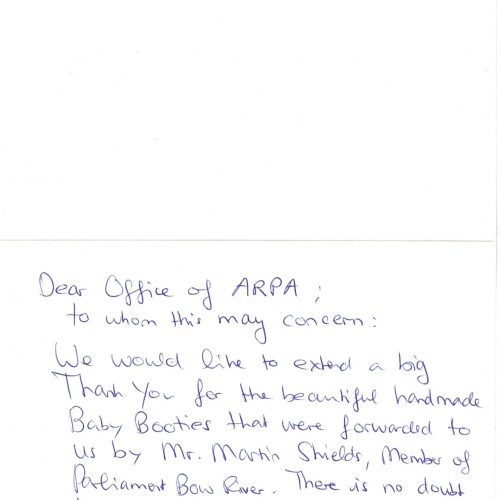 Dear Office of ARPA;
to whom this may concern:
We would like to extend a big
Thank You for the beautiful handmade
Baby Booties that were forwarded to
us by Mr. Martin Shields, Member of
Parliament Bow River. There is no doubt